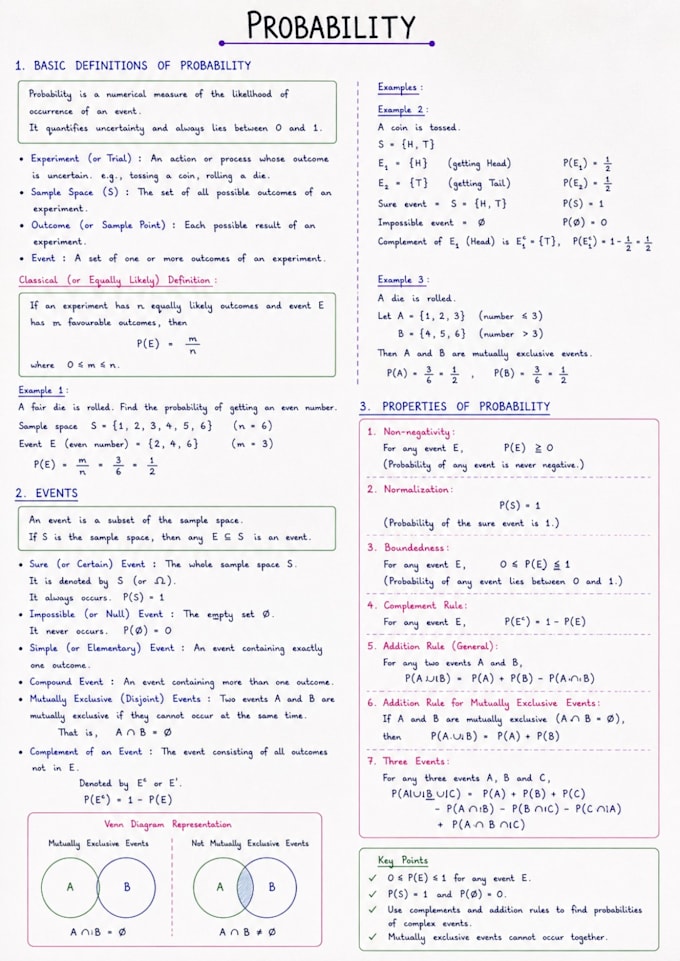 PROBABILITY
1. BASIC DEFINITIONS OF PROBABILITY
Probability is a numerical measure of the likelihood of
occurrence of an event.
It quantifies uncertainty and always lies between 0 and 1.
• Experiment (or Trial) : An action or process whose outcome
is uncertain. e.g., tossing a coin, rolling a die.
• Sample Space (S) : The set of all possible outcomes of an
experiment.
• Outcome (or Sample Point) : Each possible result of an
experiment.
• Event : A set of one or more outcomes of an experiment.
Classical (or Equally Likely) Definition :
If an experiment has n equally likely outcomes and event E
has m favourable outcomes, then
P(E) = m/n
where 0 ≤ m ≤ n.
Example 1 :
A fair die is rolled. Find the probability of getting an even number.
Sample space S = {1, 2, 3, 4, 5, 6} (n = 6)
Event E (even number) = {2, 4, 6} (m = 3)
P(E) = m/n = 3/6 = 1/2
2. EVENTS
An event is a subset of the sample space.
If S is the sample space, then any E ⊆ S is an event.
• Sure (or Certain) Event : The whole sample space S.
It is denoted by S (or Ω).
It always occurs. P(S) = 1
• Impossible (or Null) Event : The empty set Ø.
It never occurs. P(Ø) = 0
• Simple (or Elementary) Event : An event containing exactly
one outcome.
• Compound Event : An event containing more than one outcome.
• Mutually Exclusive (Disjoint) Events : Two events A and B are
mutually exclusive if they cannot occur at the same time.
That is, A ∩ B = Ø
• Complement of an Event : The event consisting of all outcomes
not in E.
Denoted by Eᶜ or E'.
P(Eᶜ) = 1 - P(E)
Venn Diagram Representation
Mutually Exclusive Events
A B
A ∩ B = Ø
Not Mutually Exclusive Events
A B
A ∩ B ≠ Ø
Examples :
Example 2 :
A coin is tossed.
S = {H, T}
E₁ = {H} (getting Head) P(E₁) = 1/2
E₂ = {T} (getting Tail) P(E₂) = 1/2
Sure event = S = {H, T} P(S) = 1
Impossible event = Ø P(Ø) = 0
Complement of E₁ (Head) is E₁ᶜ = {T}, P(E₁ᶜ) = 1 - 1/2 = 1/2
Example 3 :
A die is rolled.
Let A = {1, 2, 3} (number ≤ 3)
B = {4, 5, 6} (number > 3)
Then A and B are mutually exclusive events.
P(A) = 3/6 = 1/2 , P(B) = 3/6 = 1/2
3. PROPERTIES OF PROBABILITY
1. Non-negativity:
For any event E, P(E) ≥ 0
(Probability of any event is never negative.)
2. Normalization:
P(S) = 1
(Probability of the sure event is 1.)
3. Boundedness:
For any event E, 0 ≤ P(E) ≤ 1
(Probability of any event lies between 0 and 1.)
4. Complement Rule:
For any event E, P(Eᶜ) = 1 - P(E)
5. Addition Rule (General):
For any two events A and B,
P(A ∪ B) = P(A) + P(B) - P(A ∩ B)
6. Addition Rule for Mutually Exclusive Events:
If A and B are mutually exclusive (A ∩ B = Ø),
then P(A ∪ B) = P(A) + P(B)
7. Three Events:
For any three events A, B and C,
P(A ∪ B ∪ C) = P(A) + P(B) + P(C)
- P(A ∩ B) - P(B ∩ C) - P(C ∩ A)
+ P(A ∩ B ∩ C)
Key Points
✓ 0 ≤ P(E) ≤ 1 for any event E.
✓ P(S) = 1 and P(Ø) = 0.
✓ Use complements and addition rules to find probabilities
of complex events.
✓ Mutually exclusive events cannot occur together.